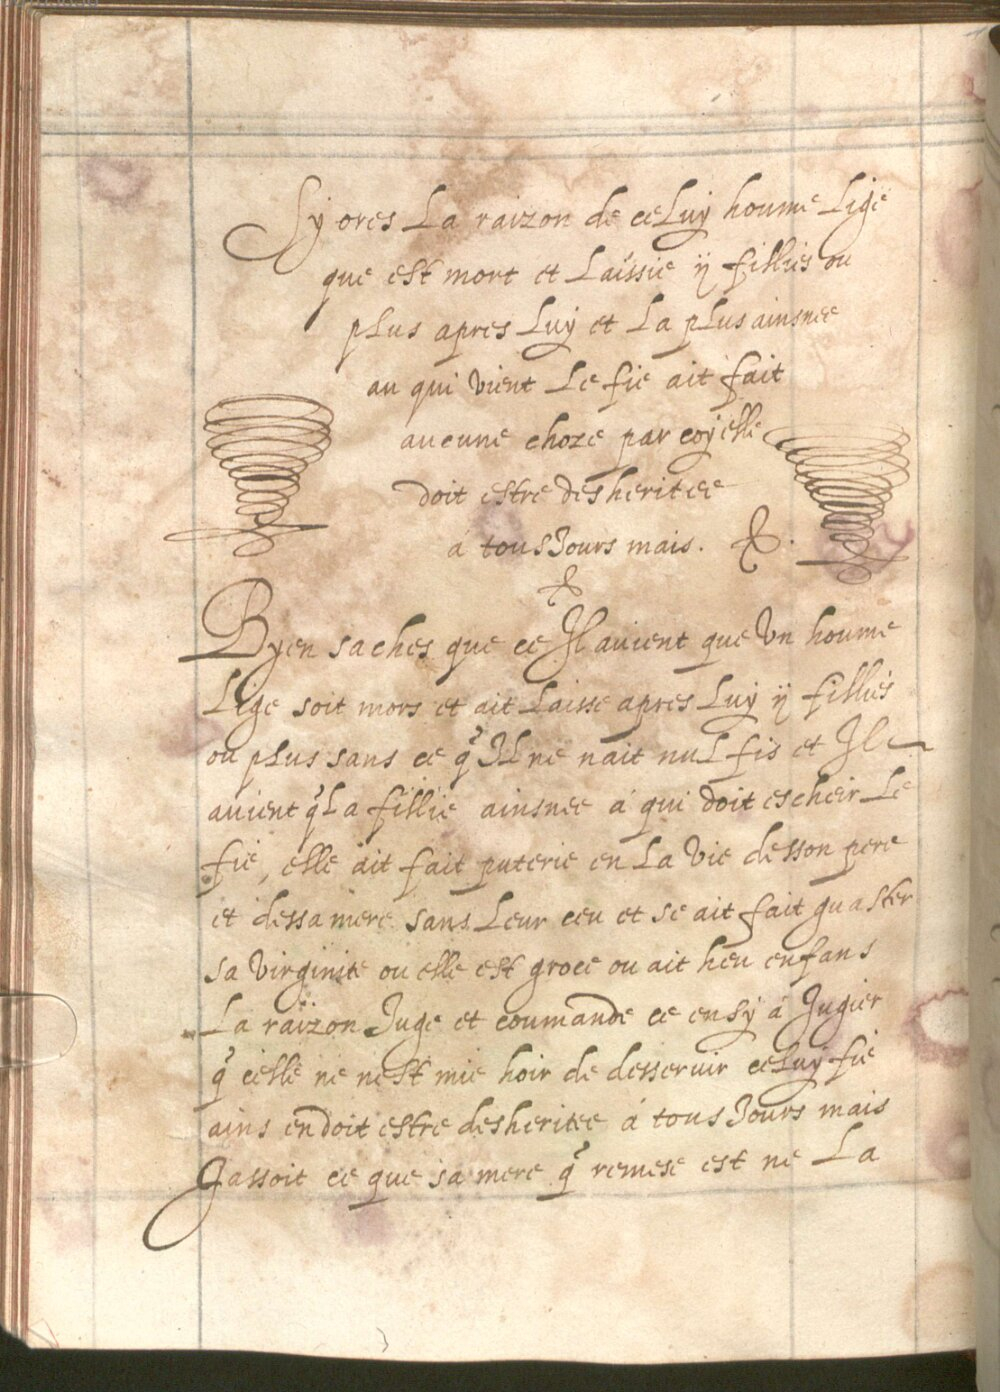 Sy ores La raizon de ceLuy houme Lige
que est mort et Laissie ij fillies ou
plus apres Luy et La plus ainsnee
au qui vient Le fie ait fait
aucune choze par coy elle
doit estre desheritee
a tousJours mais.
Byen saches que ce Jl auient que vn houme
Lige soit mors et ait Laisse apres Luy ij fillies
ou plus sans ce q̃ JL ne nait nuL fis et Jl
auient q̃ La fillie ainsnee a qui doit escheir Le
fie, elle ait fait puterie en La vie desson pere
et dessa mere sans Leur ceu et se ait fait guaster
sa virginite ou elle est groce ou ait heu enfans
La raizon Juge et coumande ce ensy a Jugier
q̃ celle ne nest mie hoir de desseruir celuy fie
ains en doit estre desheritee a tousJours mais
Jassoit ce que sa mere q̃ remese est ne La